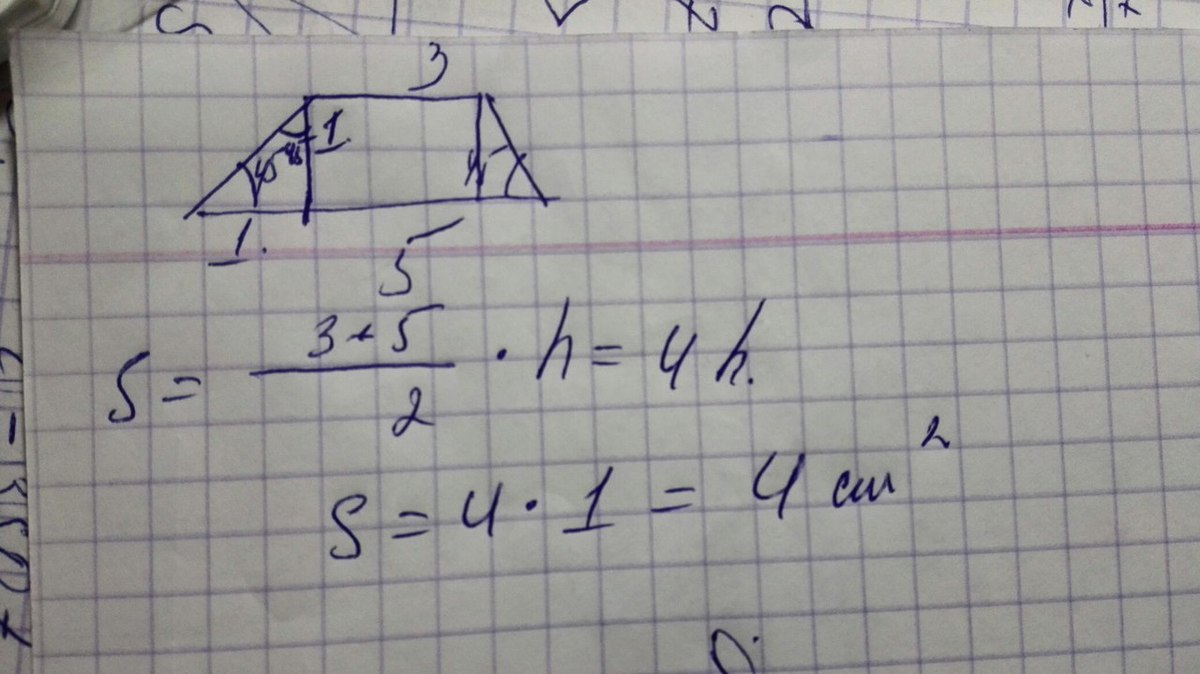 3
1.
45 45
1.
5
S = 3+5/2 · h = 4h.
S = 4 · 1 = 4 см²